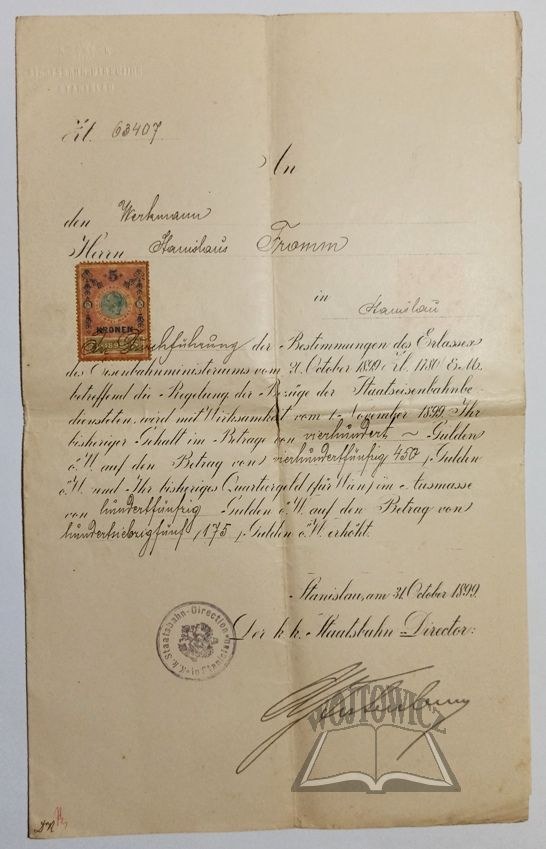 STANISLAU
Zl. 63407
An
den Werkmann
Herrn Stanislaus Fromm
in
Stanislau
5
KRONEN
In Durchführung der Bestimmungen des Erlasses
des Eisenbahnministeriums vom 21. October 1899 Zl. E.M.
betreffend die Regelung der Bezüge der Staatseisenbahnbe-
diensteten, wird mit Wirksamkeit vom 1. November 1899 Ihr
bisheriger Gehalt im Betrage von vierhundert ~ Gulden
ö.W. auf den Betrag von vierhundertfünfzig 450, Gulden
ö.W. und Ihr bisheriges Quartiergeld (für Wien) im Ausmasse
von hundertfünfzig Gulden ö.W. auf den Betrag von
hundertsiebzigfünf (175) Gulden ö.W. erhöht.
Stanislau, am 31. October 1899.
Der k.k. Staatsbahn-Director:
K.k. Staatsbahn-Direction in Stanislau
WÓJTOWICZ